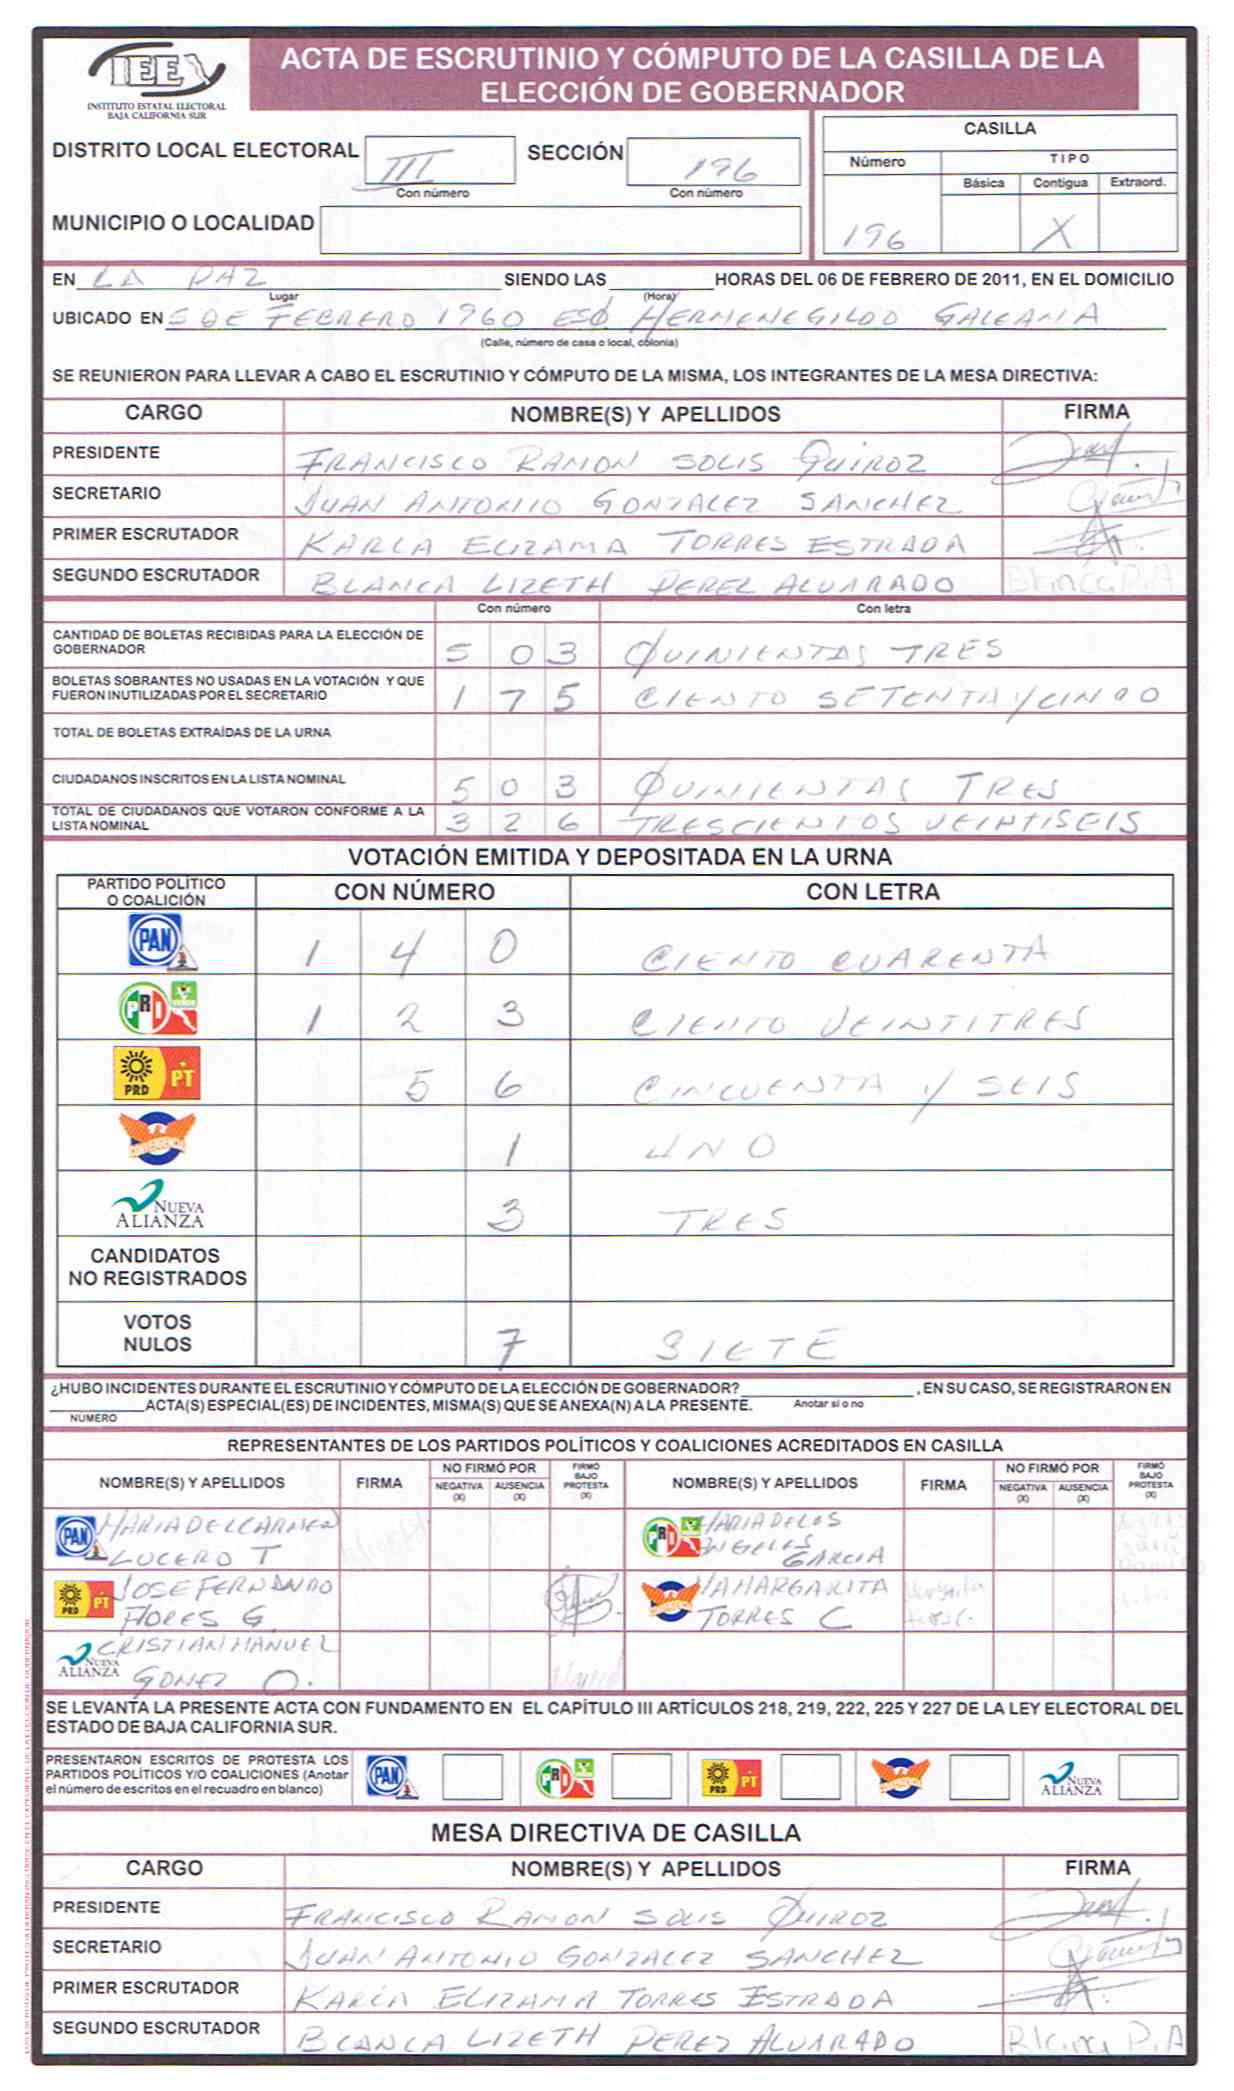 IEE
INSTITUTO ESTATAL ELECTORAL
BAJA CALIFORNIA SUR
ACTA DE ESCRUTINIO Y CÓMPUTO DE LA CASILLA DE LA
ELECCIÓN DE GOBERNADOR
DISTRITO LOCAL ELECTORAL III SECCIÓN 196
Con número Con número
MUNICIPIO O LOCALIDAD
CASILLA
Número TIPO
Básica Contigua Extraord.
196 X
EN LA PAZ SIENDO LAS HORAS DEL 06 DE FEBRERO DE 2011, EN EL DOMICILIO
Lugar (Hora)
UBICADO EN 5 DE FEBRERO 1960 ESQ HERMENEGILDO GALEANA
(Calle, número de casa o local, colonia)
SE REUNIERON PARA LLEVAR A CABO EL ESCRUTINIO Y CÓMPUTO DE LA MISMA, LOS INTEGRANTES DE LA MESA DIRECTIVA:
CARGO NOMBRE(S) Y APELLIDOS FIRMA
PRESIDENTE FRANCISCO RAMON SOLIS QUIROZ
SECRETARIO JUAN ANTONIO GONZALEZ SANCHEZ
PRIMER ESCRUTADOR KARLA ELIZAMA TORRES ESTRADA
SEGUNDO ESCRUTADOR BLANCA LIZETH PEREZ ALVARADO Blanca P.A
Con número Con letra
CANTIDAD DE BOLETAS RECIBIDAS PARA LA ELECCIÓN DE
GOBERNADOR 5 0 3 QUINIENTAS TRES
BOLETAS SOBRANTES NO USADAS EN LA VOTACIÓN Y QUE
FUERON INUTILIZADAS POR EL SECRETARIO 1 7 5 CIENTO SETENTA Y CINCO
TOTAL DE BOLETAS EXTRAÍDAS DE LA URNA
CIUDADANOS INSCRITOS EN LA LISTA NOMINAL 5 0 3 QUINIENTAS TRES
TOTAL DE CIUDADANOS QUE VOTARON CONFORME A LA
LISTA NOMINAL 3 2 6 TRESCIENTOS VEINTISEIS
VOTACIÓN EMITIDA Y DEPOSITADA EN LA URNA
PARTIDO POLÍTICO
O COALICIÓN CON NÚMERO CON LETRA
PAN 1 4 0 CIENTO CUARENTA
PRI VERDE 1 2 3 CIENTO VEINTITRES
PRD PT 5 6 CINCUENTA Y SEIS
1 UNO
NUEVA ALIANZA 3 TRES
CANDIDATOS
NO REGISTRADOS
VOTOS
NULOS 7 SIETE
¿HUBO INCIDENTES DURANTE EL ESCRUTINIO Y CÓMPUTO DE LA ELECCIÓN DE GOBERNADOR? , EN SU CASO, SE REGISTRARON EN
ACTA(S) ESPECIAL(ES) DE INCIDENTES, MISMA(S) QUE SE ANEXA(N) A LA PRESENTE. Anotar si o no
NÚMERO
REPRESENTANTES DE LOS PARTIDOS POLÍTICOS Y COALICIONES ACREDITADOS EN CASILLA
NOMBRE(S) Y APELLIDOS FIRMA NO FIRMÓ POR NEGATIVA (X) AUSENCIA (X) FIRMÓ BAJO PROTESTA (X) NOMBRE(S) Y APELLIDOS FIRMA NO FIRMÓ POR NEGATIVA (X) AUSENCIA (X) FIRMÓ BAJO PROTESTA (X)
PAN MARIA DEL CARMEN LUCERO T
PRI MARIA DE LOS ANGELES GARCIA
PRD PT JOSE FERNANDO FLORES G.
MA MARGARITA TORRES C
NUEVA ALIANZA CRISTIAN MANUEL GOMEZ O.
SE LEVANTA LA PRESENTE ACTA CON FUNDAMENTO EN EL CAPÍTULO III ARTÍCULOS 218, 219, 222, 225 Y 227 DE LA LEY ELECTORAL DEL
ESTADO DE BAJA CALIFORNIA SUR.
PRESENTARON ESCRITOS DE PROTESTA LOS
PARTIDOS POLÍTICOS Y/O COALICIONES (Anotar
el número de escritos en el recuadro en blanco) PAN PRI PRD PT NUEVA ALIANZA
MESA DIRECTIVA DE CASILLA
CARGO NOMBRE(S) Y APELLIDOS FIRMA
PRESIDENTE FRANCISCO RAMON SOLIS QUIROZ
SECRETARIO JUAN ANTONIO GONZALEZ SANCHEZ
PRIMER ESCRUTADOR KARLA ELIZAMA TORRES ESTRADA
SEGUNDO ESCRUTADOR BLANCA LIZETH PEREZ ALVARADO Blanca P.A